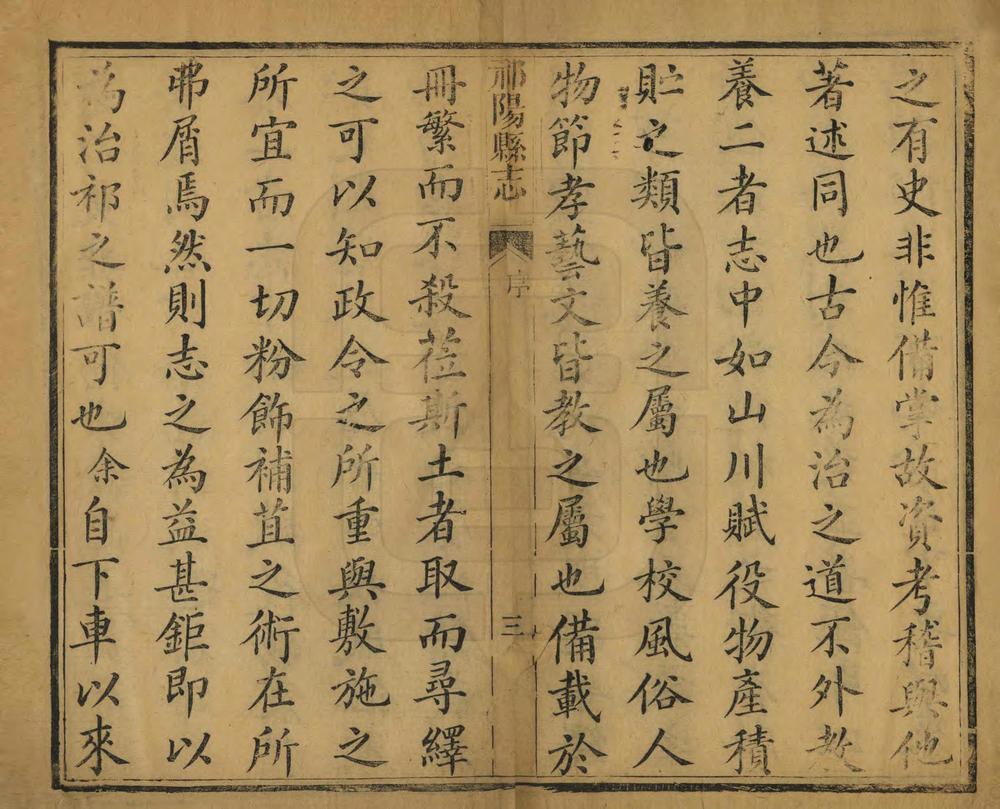 之有史非惟備掌故資考稽與他
著述同也古今為治之道不外教
養二者志中如山川賦役物產積
貯之類皆養之屬也學校風俗人
物節孝藝文皆教之屬也備載於
祁陽縣志 序 三
冊繁而不殺蒞斯土者取而尋繹
之可以知政令之所重與敷施之
所宜而一切粉飾補苴之術在所
弗屑焉然則志之為益甚鉅即以
為治祁之譜可也余自下車以來